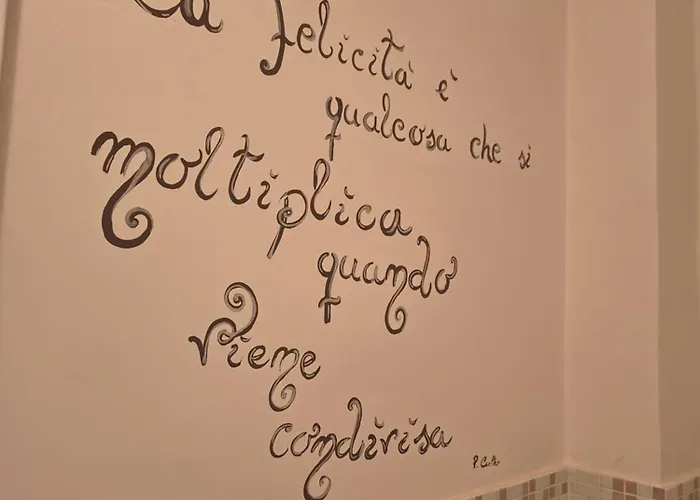 La felicità è
qualcosa che si
moltiplica
quando
viene
condivisa